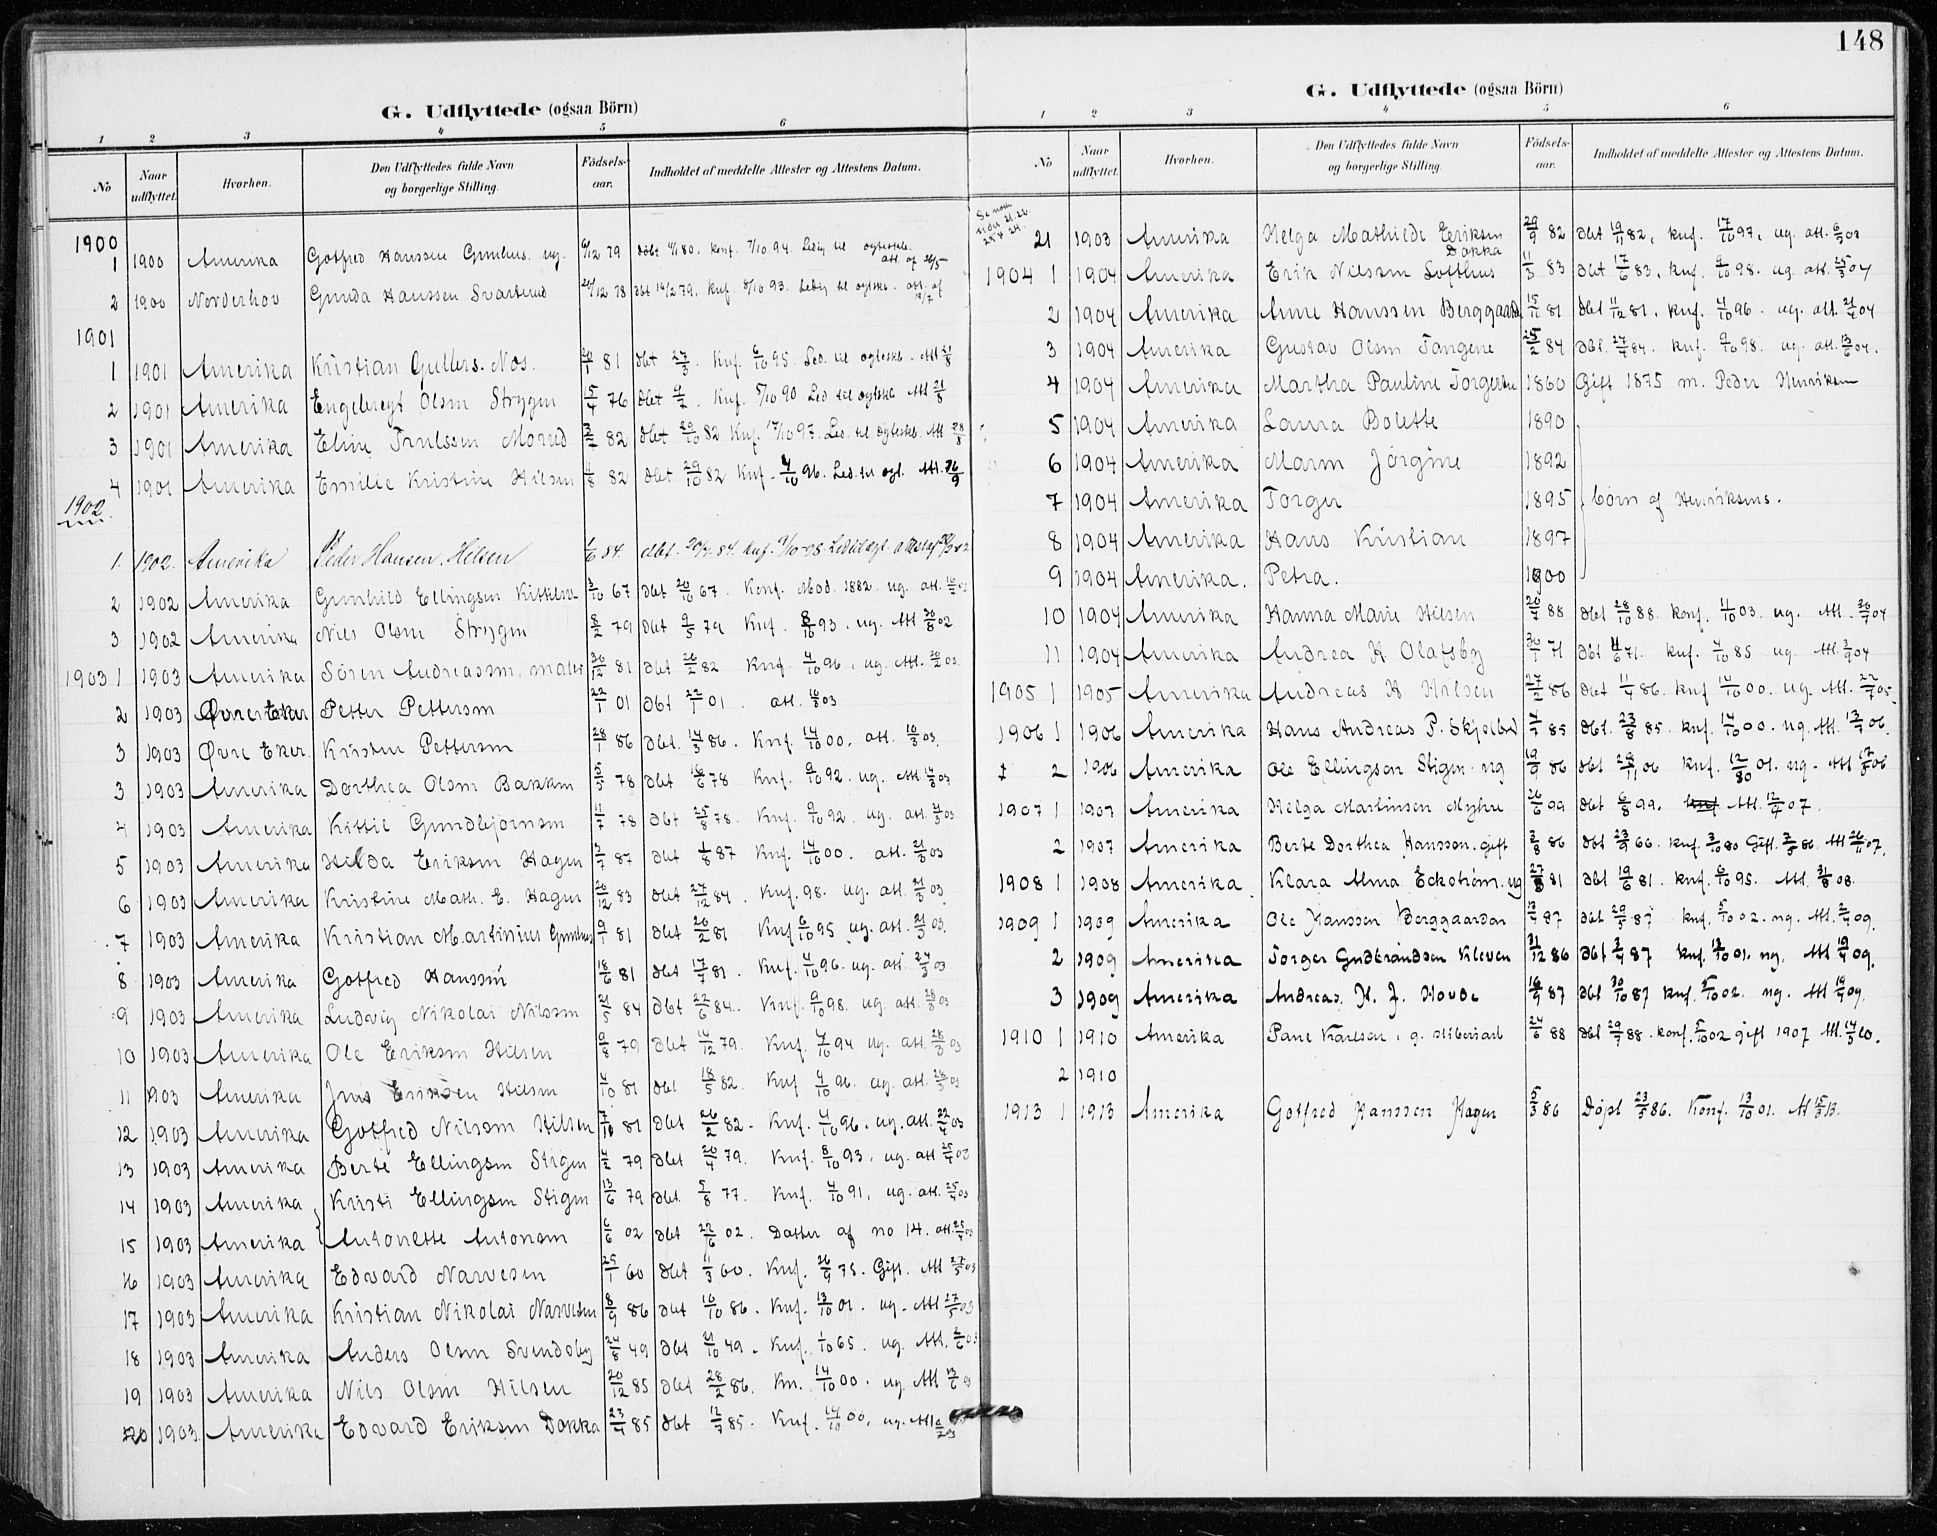 148
G. Udflyttede (ogsaa Börn)
1 2 3 4 5 6
No Naar udflyttet. Hvorhen. Den Udflyttedes fulde Navn og borgerlige Stilling. Födsels-aar. Indholdet af meddelte Attester og Attestens Datum.
1900
1 1900 Amerika Gotfred Hanssen Gunhus. ug. 6/12 79 Döbt 4/1 80. Konf. 7/10 94. Ledig til ægtesk. att. af 26/5
2 1900 Norderhov Gunda Hanssen Svarterud 24/12 78 dbt 16/2 79. Knf. 8/10 93. Ledig til ægtesk. att. af 12/7
1901
1 1901 Amerika Kristian Gullers. Nos. 20/1 81 dbt 27/3. Knf. 6/10 95. Led. til ægteskb. Att 21/8
2 1901 Amerika Engebregt Olsen Strygen 15/4 76 Dbt. Knf. 5/10 90 Led til ægtskb Att 21/8
3 1901 Amerika Eline Trulssen Morud 82 dbt 29/10 82 Knf. 17/10 97. Led. til ægteskb. Att 28/8
4 1901 Amerika Emilie Kristine Hilsen 11/8 82 dbt 29/10 82 Knf. 4/10 96. Led. til ægt. Att. 26/9
1902
1. 1902. Amerika Peder Hansen. Helsen 1/6 84. dbt. 84. Knf. 9/10 98.
2 1902 Amerika Gunhild Ellingsen Kittilsen 3/10 67 dbt 20/10 67. Konf. Mod. 1882. ug. att.
3 1902 Amerika Nils Olsen Strygen 8/2 79 dbt 9/5 79 Knf. 8/10 93. ug. Att 02
1903 1 1903 Amerika Sören Andreassen, maler 30/12 81 dbt 26/2 82 Knf 4/10 96. ug. Att. 03.
2 1903 Övre Eker Petter Pettersen 22/1 01 dbt 01. att. 03
3 1903 Övre Eker Kristen Pettersen 28/1 86 dbt. 14/3 86. Knf. 14/10 00. att. 03.
3 1903 Amerika Dorthea Olsen Bakken 5/5 78 dbt 78 Knf. 9/10 92. ug. Att. 03
4 1903 Amerika Kittil Gundbjörnsen 11/7 78 dbt 25/8 78. Knf. 9/10 92. ug. att. 03
5 1903 Amerika Hilda Eriksen Hagen 3/7 87 dbt 1/8 87 Knf. 14/10 00. att. 21/3 03
6 1903 Amerika Kristine Math. E. Hagen 20/12 83 dbt 27/12 84. Knf. 98. ug. att. 21/3 03.
7 1903 Amerika Kristian Martinius Gunhus 9/1 81 dbt 20/2 81 Knf 6/10 95 ug. att. 21/3 03.
8 1903 Amerika Gotfred Hanssen 18/6 81 dbt 17/7 81. Knf. 4/10 96. ug. att. 24/3 03
9 1903 Amerika Ludvig Nikolai Nilssen 21/5 84 dbt 22/6 84. Knf. 9/10 98. ug. att. 28/3 03
10 1903 Amerika Ole Eriksen Hilsen 9/8 79 dbt 14/12 79. Knf. 7/10 94 ug. att. 28/3 03
11 1903 Amerika Jens Eriksen Hilsen 4/10 81 dbt 18/5 82. Knf 4/10 96. ug. att. 28/3 03
12 1903 Amerika Gotfred Nilsen Hilsen 7/10 81 dbt 26/2 82. Knf. 4/10 96. ug. att. 22/4 03
13 1903 Amerika Berte Ellingsen Stigen 4/2 79 dbt 20/4 79. Knf. 8/10 93. ug. att 25/4 03
14 1903 Amerika Kristi Ellingsen Stigen 13/6 79 dbt. 5/8 77. Knf. 4/10 91. ug. att. 25/4 03
15 1903 Amerika Antonette Antonsen 6/6 02 dbt 22/6 02. Datter af no 14. att. 25/4 03
16 1903 Amerika Edvard Narvesen 25/1 60 dbt 11/3 60. Knf. 26/9 75. Gift. Att 27/5 03
17 1903 Amerika Kristian Nikolai Narvesen 8/9 86 dbt 10/10 86. Knf. 13/10 01. ug. Att 27/5 03
18 1903 Amerika Anders Olsen Svendsby 24/8 49 dbt 21/10 49. Knf. 1/10 65. ug. Att. 2/6 03
19 1903 Amerika Nils Olsen Hilsen 20/12 85 dbt 28/2 86. Kn. 14/10 00. ug. Att 13/6 03
20 1903. Amerika Edvard Eriksen Dokka 23/4 85 dbt 12/7 85. Knf. 14/10 00. ug. Att
G. Udflyttede (ogsaa Börn)
1 2 3 4 5 6
No Naar udflyttet. Hvorhen. Den Udflyttedes fulde Navn og borgerlige Stilling. Födsels-aar. Indholdet af meddelte Attester og Attestens Datum.
21 1903 Amerika Helga Mathilde Eriksen Dokka 29/9 82 dbt 19/11 82. Knf. 17/10 97. ug. att. 03
1904 1 1904 Amerika Erik Nilsen Lofthus 11/3 83 dbt 17/6 83. Knf. 9/10 98. ug. att. 25/3 04
2 1904 Amerika Anne Hanssen Berggaard 15/11 81 dbt 11/12 81. Knf. 4/10 96. ug. att. 04
3 1904 Amerika Gustav Olsen Tangene 25/2 84 dbt. 27/4 84. Knf. 9/10 98. ug. att. 13/6 04.
4 1904 Amerika Martha Pauline Torgersen 1860 Gift 1875 m. Peder Henriksen
5 1904 Amerika Laura Bolette 1890
6 1904 Amerika Maren Jörgine 1892
7 1904 Amerika Torger 1895 börn af Henriksens.
8 1904 Amerika Hans Kristian 1897
9 1904 Amerika. Petra. 1900
10 1904 Amerika Hanna Marie Hilsen 88 dbt 28/10 88. Konf. 11/10 03. ug. Att. 04
11 1904 Amerika Andrea H. Olafsby 30/1 71 dbt 71. Knf. 4/10 85 ug. Att. 04
1905 1 1905 Amerika Andreas H. Hilsen 27/2 86 dbt 11/4 86. Knf 14/10 00. ug. Att. 22/4 05.
1906 1 1906 Amerika Hans Andreas P. Skjelbred 4/7 85 dbt. 23/8 85. Knf. 14/10 00. ug. Att. 06.
2 1906 Amerika Ole Ellingsen Stigen. ug 19/9 86 dbt 06 Knf. 01. ug. Att 06
1907 1 1907 Amerika Helga Martinsen Myhre 26/6 99 dbt 6/8 99. Att. 07.
2 1907 Amerika Berte Dorthea Hansson. gift 86 dbt 66. Knf. 3/10 80 Gift. 86. Att 26/11 07.
1908 1 1908 Amerika. Klara Alma Eckström. ug 81 dbt 19/6 81. Knf. 6/10 95. Att. 31/8 08.
1909 1 1909 Amerika Ole Hanssen Berggaarden 13/4 87 dbt 29/5 87 Knf. 5/10 02. ug. Att. 09.
2 1909 Amerika Torger Gudbrandsen Kleven 31/12 86 dbt 3/4 87 Knf. 13/10 01. ug. Att 19/4 09.
3 1909 Amerika Andreas H. J. Hovde 16/9 87 dbt 30/10 87 Knf. 5/10 02. ug. Att 19/4 09.
1910 1 1910 Amerika 24/6 88 dbt 29/7 88. Konf. 5/10 02 gift 1907 Att. 14/3 10.
2 1910
1913 1 1913 Amerika Gotfred Hanssen Hagen 5/3 86 Döpt 23/5 86. Konf. 13/10 01. At 15/3 13.